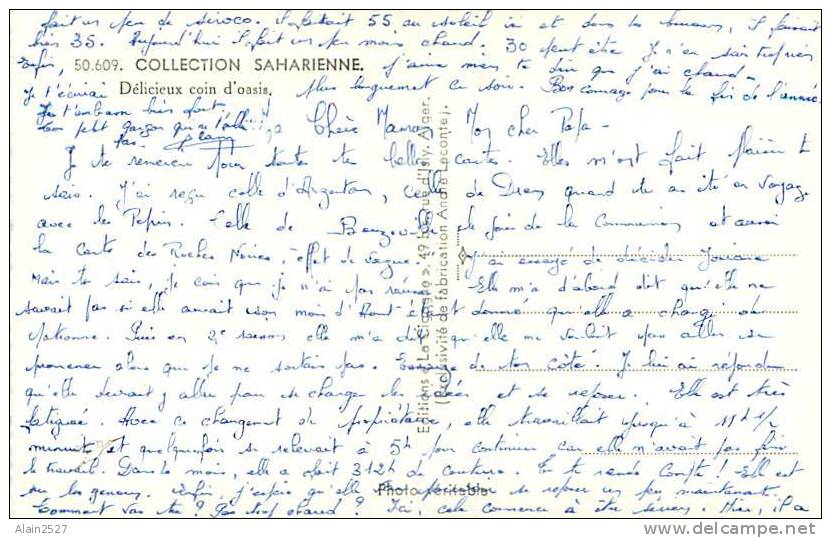 fait un peu de siroco. Il faisait 55 au soleil ici et dans les bureaux, il faisait
bien 35. Aujourd'hui il fait un peu moins chaud. 30 peut être. Je n'en sais trop rien
Enfin, j'aime mieux te dire que j'ai chaud.
50.609. COLLECTION SAHARIENNE.
Délicieux coin d'oasis.
Je t'écrirai plus longuement ce soir. Bon courage pour la fin de l'année.
Je t'embrasse bien fort.
Ton petit garçon qui ne t'oublie
pas.
Chère Maman Mon cher Papa -
Je te remercie pour toutes tes belles cartes. Elles m'ont fait plaisir tu
sais. J'ai reçu celle d'Argentan, celle de Dreux quand tu as été en voyage
avec les Pépin. Celle de Beuzeville le jour de la Communion et aussi
la carte des Roches Noires, effet de vague. J'ai essayé de décider Josiane
Mais tu sais, je crois que je n'ai pas réussi. Elle m'a d'abord dit qu'elle ne
savait pas si elle aurait son mois d'Août étant donné qu'elle a changé de
patronne. Puis en 2e raison elle m'a dit qu'elle ne voulait pas aller se
promener alors que je ne sortais pas. de mon côté. Je lui ai répondu
qu'elle devrait y aller pour se changer les idées et se reposer. Elle est très
fatiguée. Avec ce changement de propriétaire, elle travaillait jusqu'à 11h 1/2
minuit et quelquefois se relevait à 5h pour continuer car elle n'avait pas fini
le travail. Dans le mois, elle a fait 312h de couture. Tu te rends compte! Elle est
sur les genoux. Enfin, j'espère qu'elle se reposer un peu maintenant.
Comment vas tu? Pas trop chaud? Ici, cela commence à être sérieux. Hier, il a
Editions « La Cigogne », 49 bis, rue d'Isly, Alger.
(Exclusivité de fabrication André Leconte).
Photo véritable
Alain2527
delcampe.net